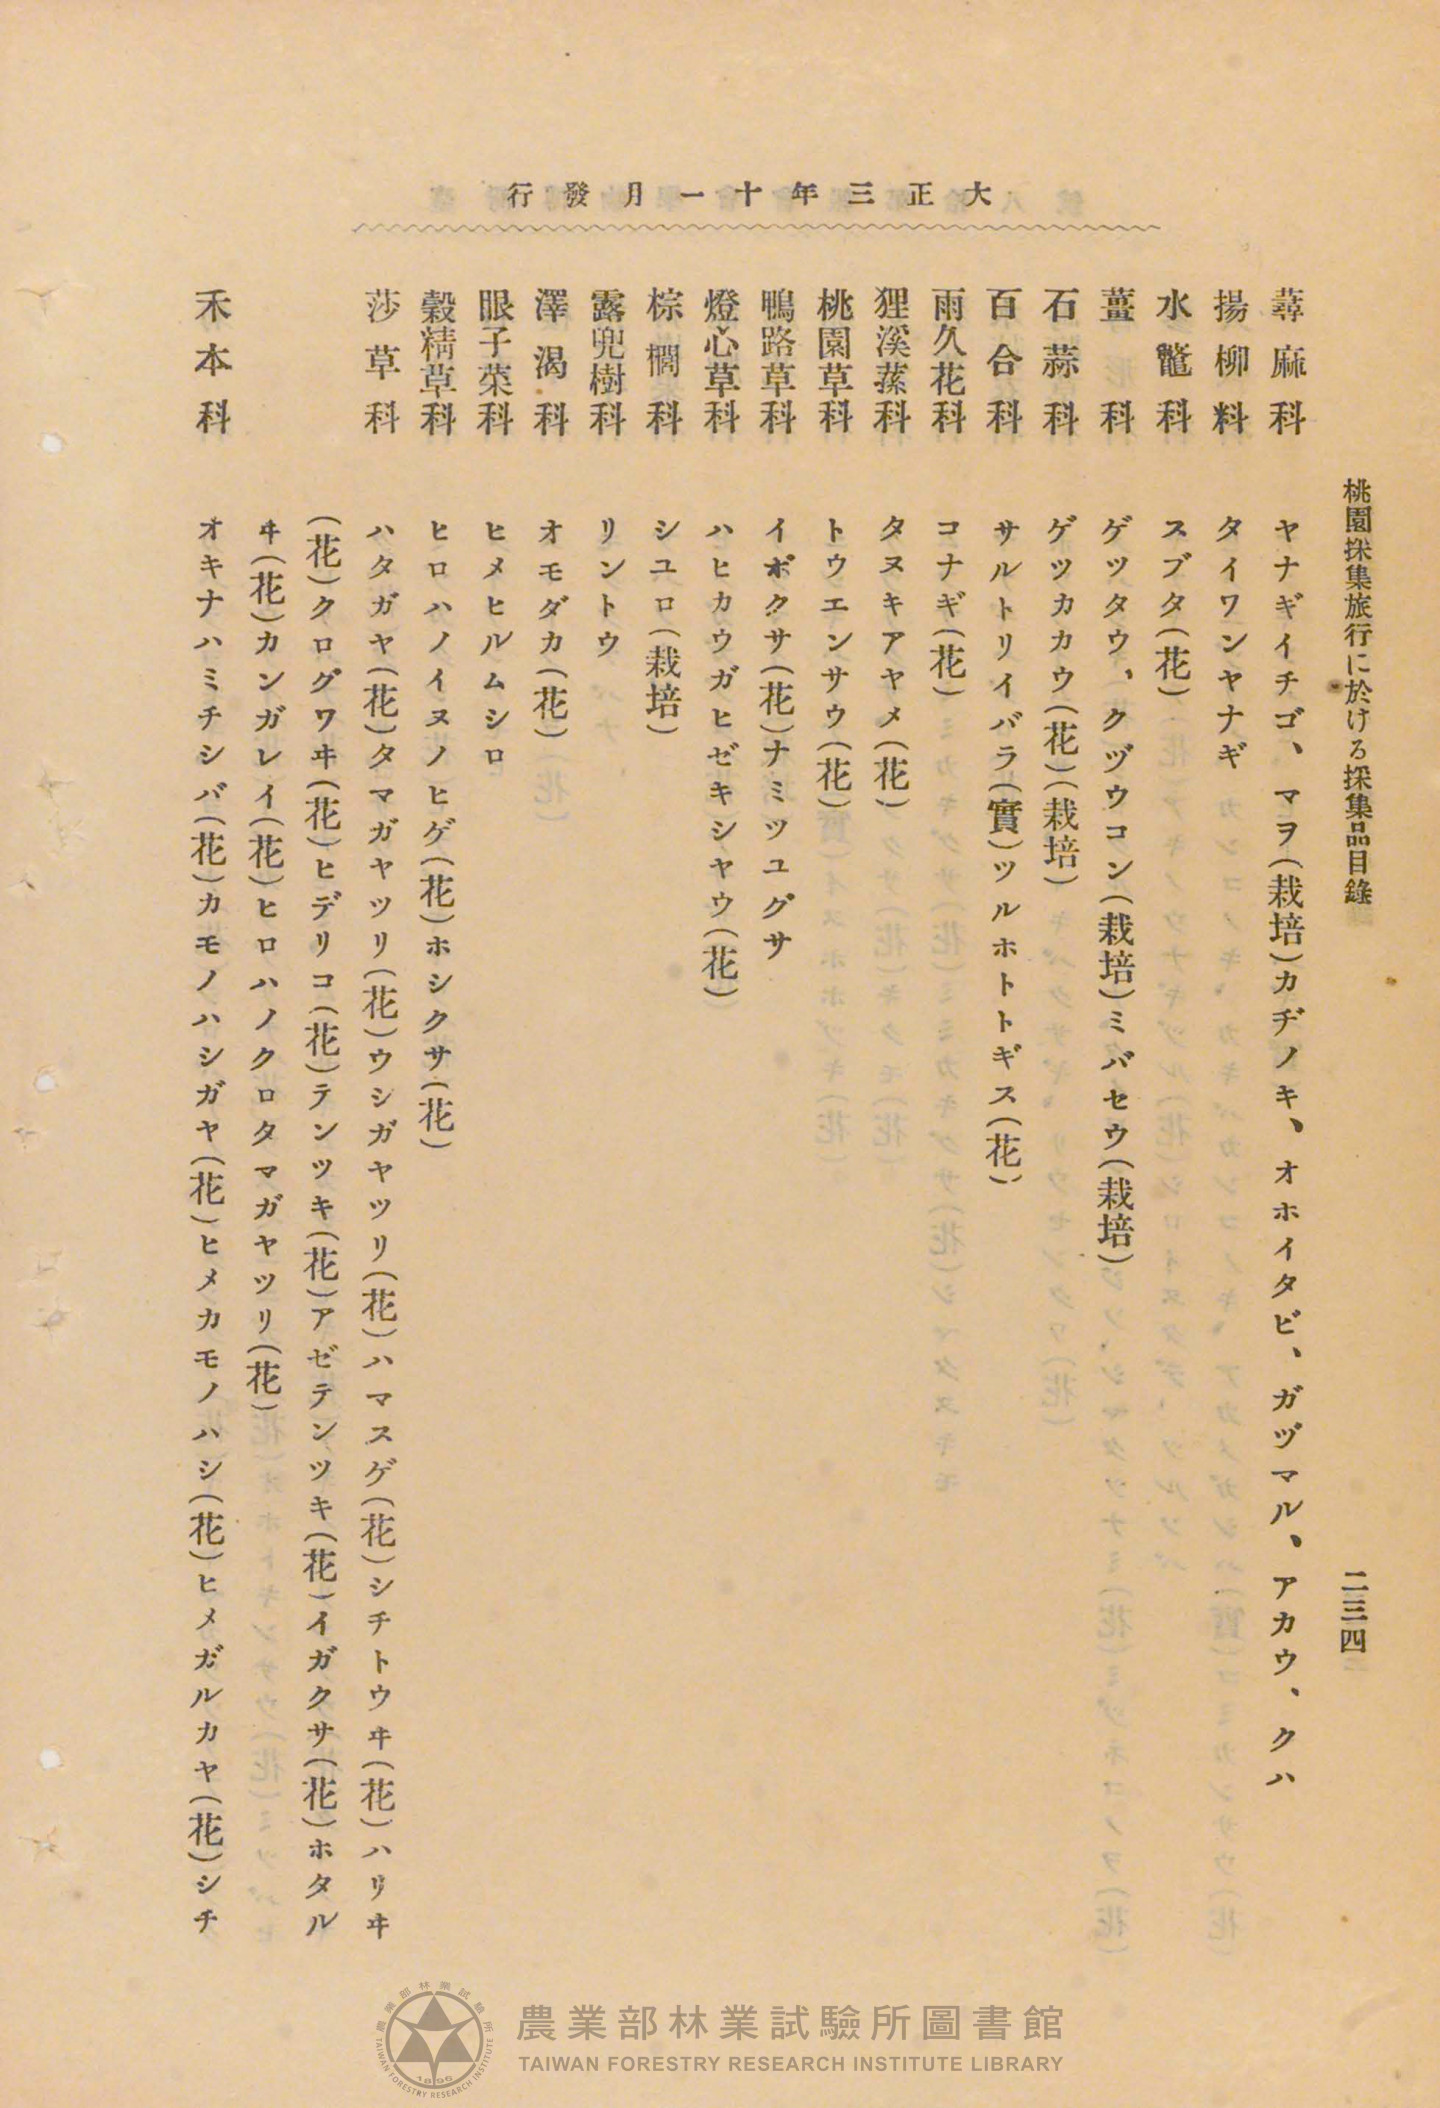 大正三年十一月發行
桃園採集旅行に於ける採集品目錄
二三四
蕁麻科 ヤナギイチゴ、マヲ(栽培)カヂノキ、オホイタビ、ガヅマル、アカウ、クハ
揚柳料 タイワンヤナギ
水鼈科 スブタ(花)
薑科 ゲツタウ、クヅウコン(栽培)ミバセウ(栽培)
石蒜科 ゲツカカウ(花)(栽培)
百合科 サルトリイバラ(實)ツルホトトギス(花)
雨久花科 コナギ(花)
狸溪蓀科 タヌキアヤメ(花)
桃園草科 トウエンサウ(花)
鴨路草科 イボクサ(花)ナミツユグサ
燈心草科 ハヒカウガヒゼキシヤウ(花)
棕櫚科 シユロ(栽培)
露兜樹科 リントウ
澤渴科 オモダカ(花)
眼子菜科 ヒメヒルムシロ
穀精草科 ヒロハノイヌノヒゲ(花)ホシクサ(花)
莎草科 ハタガヤ(花)タマガヤツリ(花)ウシガヤツリ(花)ハマスゲ(花)シチトウヰ(花)ハリヰ
(花)クログワヰ(花)ヒデリコ(花)テンツキ(花)アゼテンツキ(花)イガクサ(花)ホタル
ヰ(花)カンガレイ(花)ヒロハノクロタマガヤツリ(花)
禾本科 オキナハミチシバ(花)カモノハシガヤ(花)ヒメカモノハシ(花)ヒメガルカヤ(花)シチ
農業部林業試驗所圖書館
TAIWAN FORESTRY RESEARCH INSTITUTE LIBRARY
農業部林業試驗所
TAIWAN FORESTRY RESEARCH INSTITUTE
1896